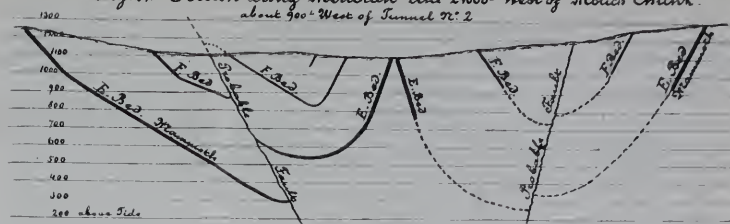 Section along Meridian Line 24000' West of Mauch Chunk.
about 900' West of Tunnel No. 2
1300
1200
1100
1000
900
800
700
600
500
400
300
200 above Tide
E. Bed. Mammoth
F. Bed
Probable Fault
F. Bed
E. Bed
E. Bed
F. Bed
Probable Fault
F. Bed
E. Bed
Mammoth